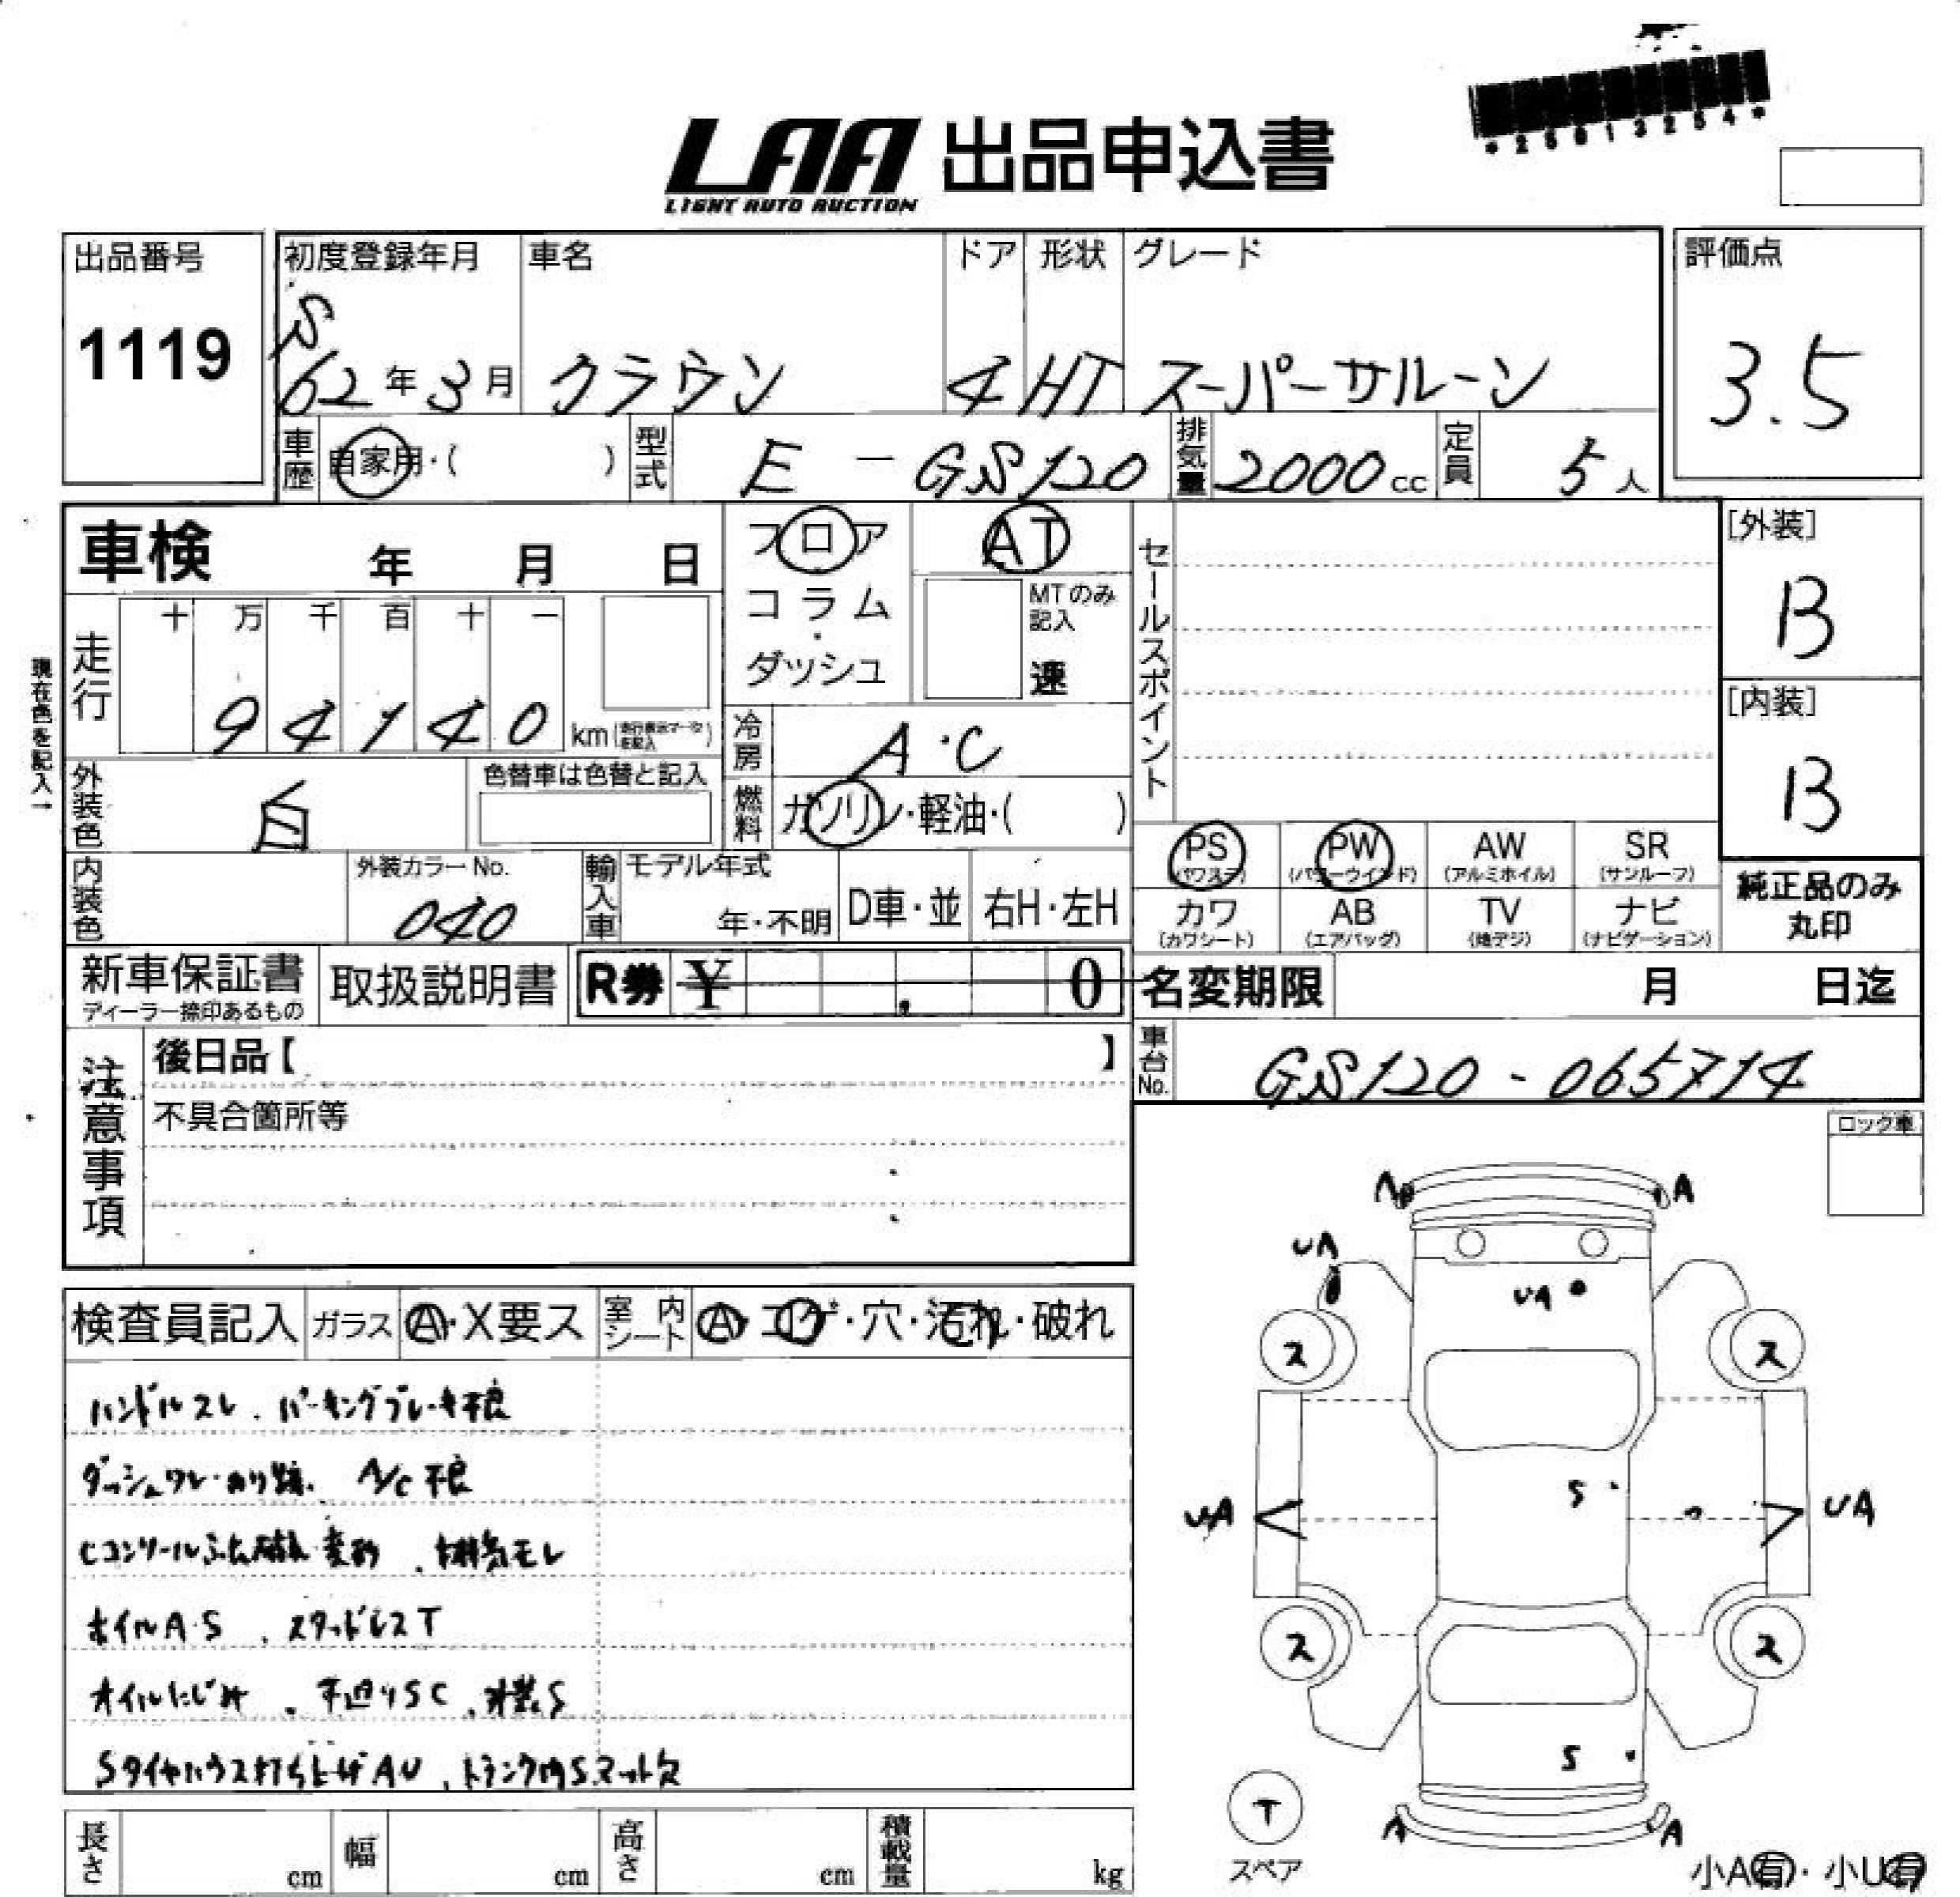 *25613254*
LAA 出品申込書
LIGHT AUTO AUCTION
出品番号 初度登録年月 車名 ドア 形状 グレード 評価点
1119 S 62年3月 クラウン 4 HT スーパーサルーン 3.5
車歴 自家用・( ) 型式 E - GS120 排気量 2000cc 定員 5人
車検 年 月 日 フロア AT セールスポイント [外装]
コラム・ MTのみ記入 B
十 万 千 百 十 一
ダッシュ 速
走行 94140 km [内装]
現在色を記入→
冷房 A・C B
外装色 白 色替車は色替と記入 燃料 ガソリン・軽油・( )
PS(パワステ) PW(パワーウインド) AW(アルミホイル) SR(サンルーフ)
内装色 外装カラーNo. 040 輸入車 モデル年式 年・不明 D車・並 右H・左H
カワ(カワシート) AB(エアバッグ) TV(地デジ) ナビ(ナビゲーション) 純正品のみ丸印
新車保証書 取扱説明書 R券 ¥ 0 名変期限 月 日迄
ディーラー捺印あるもの
注意事項 後日品【 】 車台No. GS120-065714
不具合箇所等
ロック車
検査員記入 ガラス A・X要ス 室内シート A・コゲ・穴・汚れ・破れ
ハンドルスレ、パーキングブレーキ不良
ダッシュワレ・のり跡、A/C不良
Cコンソールふた破れ・変形、排気モレ
ホイルA・S、スタッドレスT
オイルにじみ、下廻りSC
Sタイヤハウス打ち上げAU、トランク内Sマット欠
A A
UA
UA
ス ス
S
UA UA
ス ス
S
T
スペア
A A
小A有・小U有
長さ cm 幅 cm 高さ cm 積載量 kg